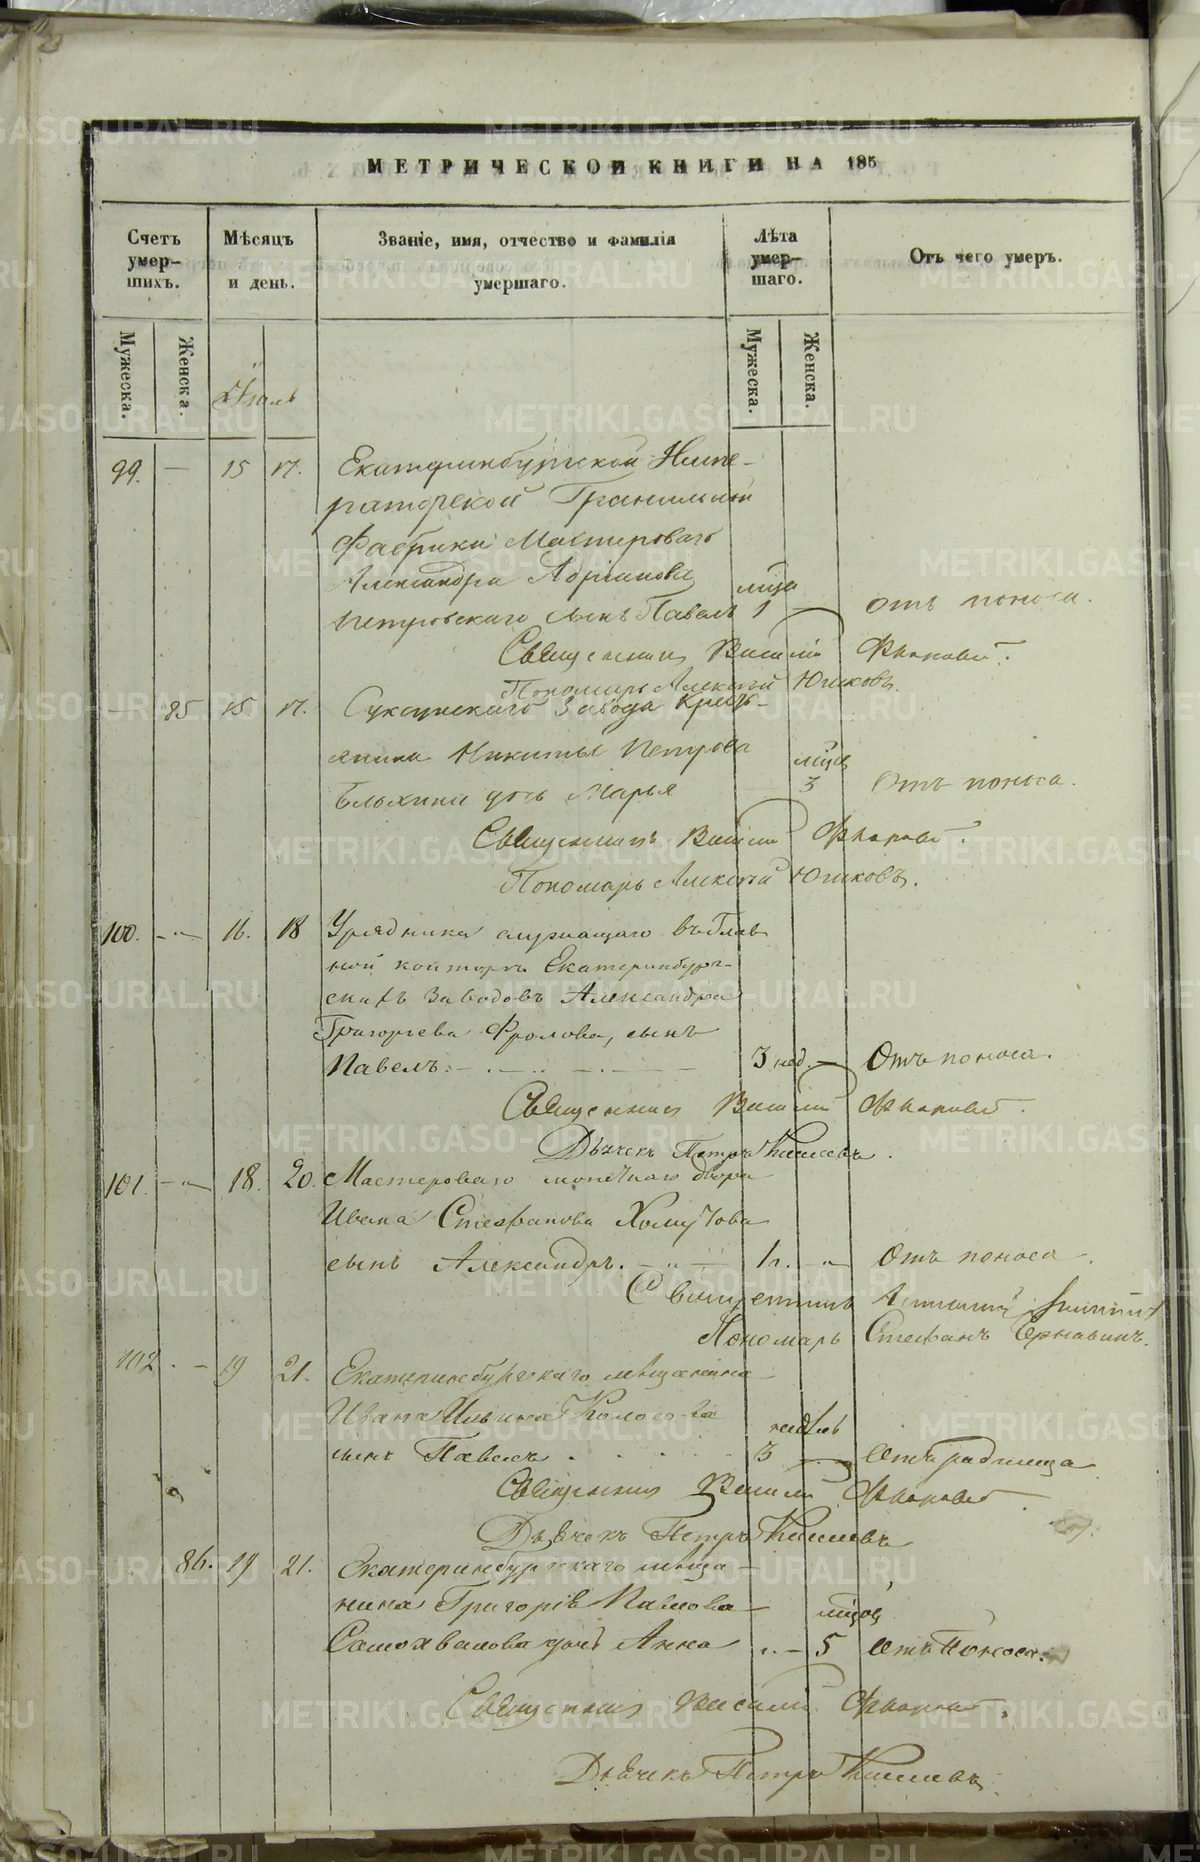 МЕТРИЧЕСКОЙ КНИГИ НА 185
Счетъ умер-шихъ.
Мѣсяцъ и день.
Званіе, имя, отчество и фамилія умершаго.
Лѣта умер-шаго.
Отъ чего умеръ.
Мужеска.
Женска.
Мужеска.
Женска.
Іюль
99. — 15 17. Екатеринбургской Импе-
раторской Гранильной
Фабрики Мастероваго
Александра Адріанова
Петровскаго сынъ Павелъ 1 — отъ поноса.
Священникъ Василій
Пономарь Алексѣй Юшковъ.
— 85 15. 17. Суксунскаго Завода Кресть-
янина Никиты Петрова
Блохина дочь Марья 3 Отъ поноса.
Священникъ Василій
Пономарь Алексѣй Юшковъ.
100. — 16. 18 Урядника служащаго въ Глав-
ной конторѣ Екатеринбург-
скихъ Заводовъ Александра
Григорьева Фролова, сынъ
Павелъ. 3 нед. — Отъ поноса.
Священникъ Василій
Дьячекъ Петръ Киселевъ.
101. — 18. 20. Мастероваго монетнаго двора
Ивана Стефанова Хомутова
сынъ Александръ. Отъ поноса.
Священникъ
Пономарь Стефанъ Чернавинъ.
102. — 19 21. Екатеринбургскаго мѣщанина
Ивана Ильина Колосова
недѣль
сынъ Павелъ 3 — Отъ родимца
Священникъ Василій
Дьячекъ Петръ Киселевъ
86. 19 21. Екатеринбургскаго мѣща-
нина Григорія Павлова
Самохвалова дочь Анна — 5 Отъ Поноса.
Священникъ Василій
Дьячекъ Петръ Киселевъ
METRIKI.GASO-URAL.RU